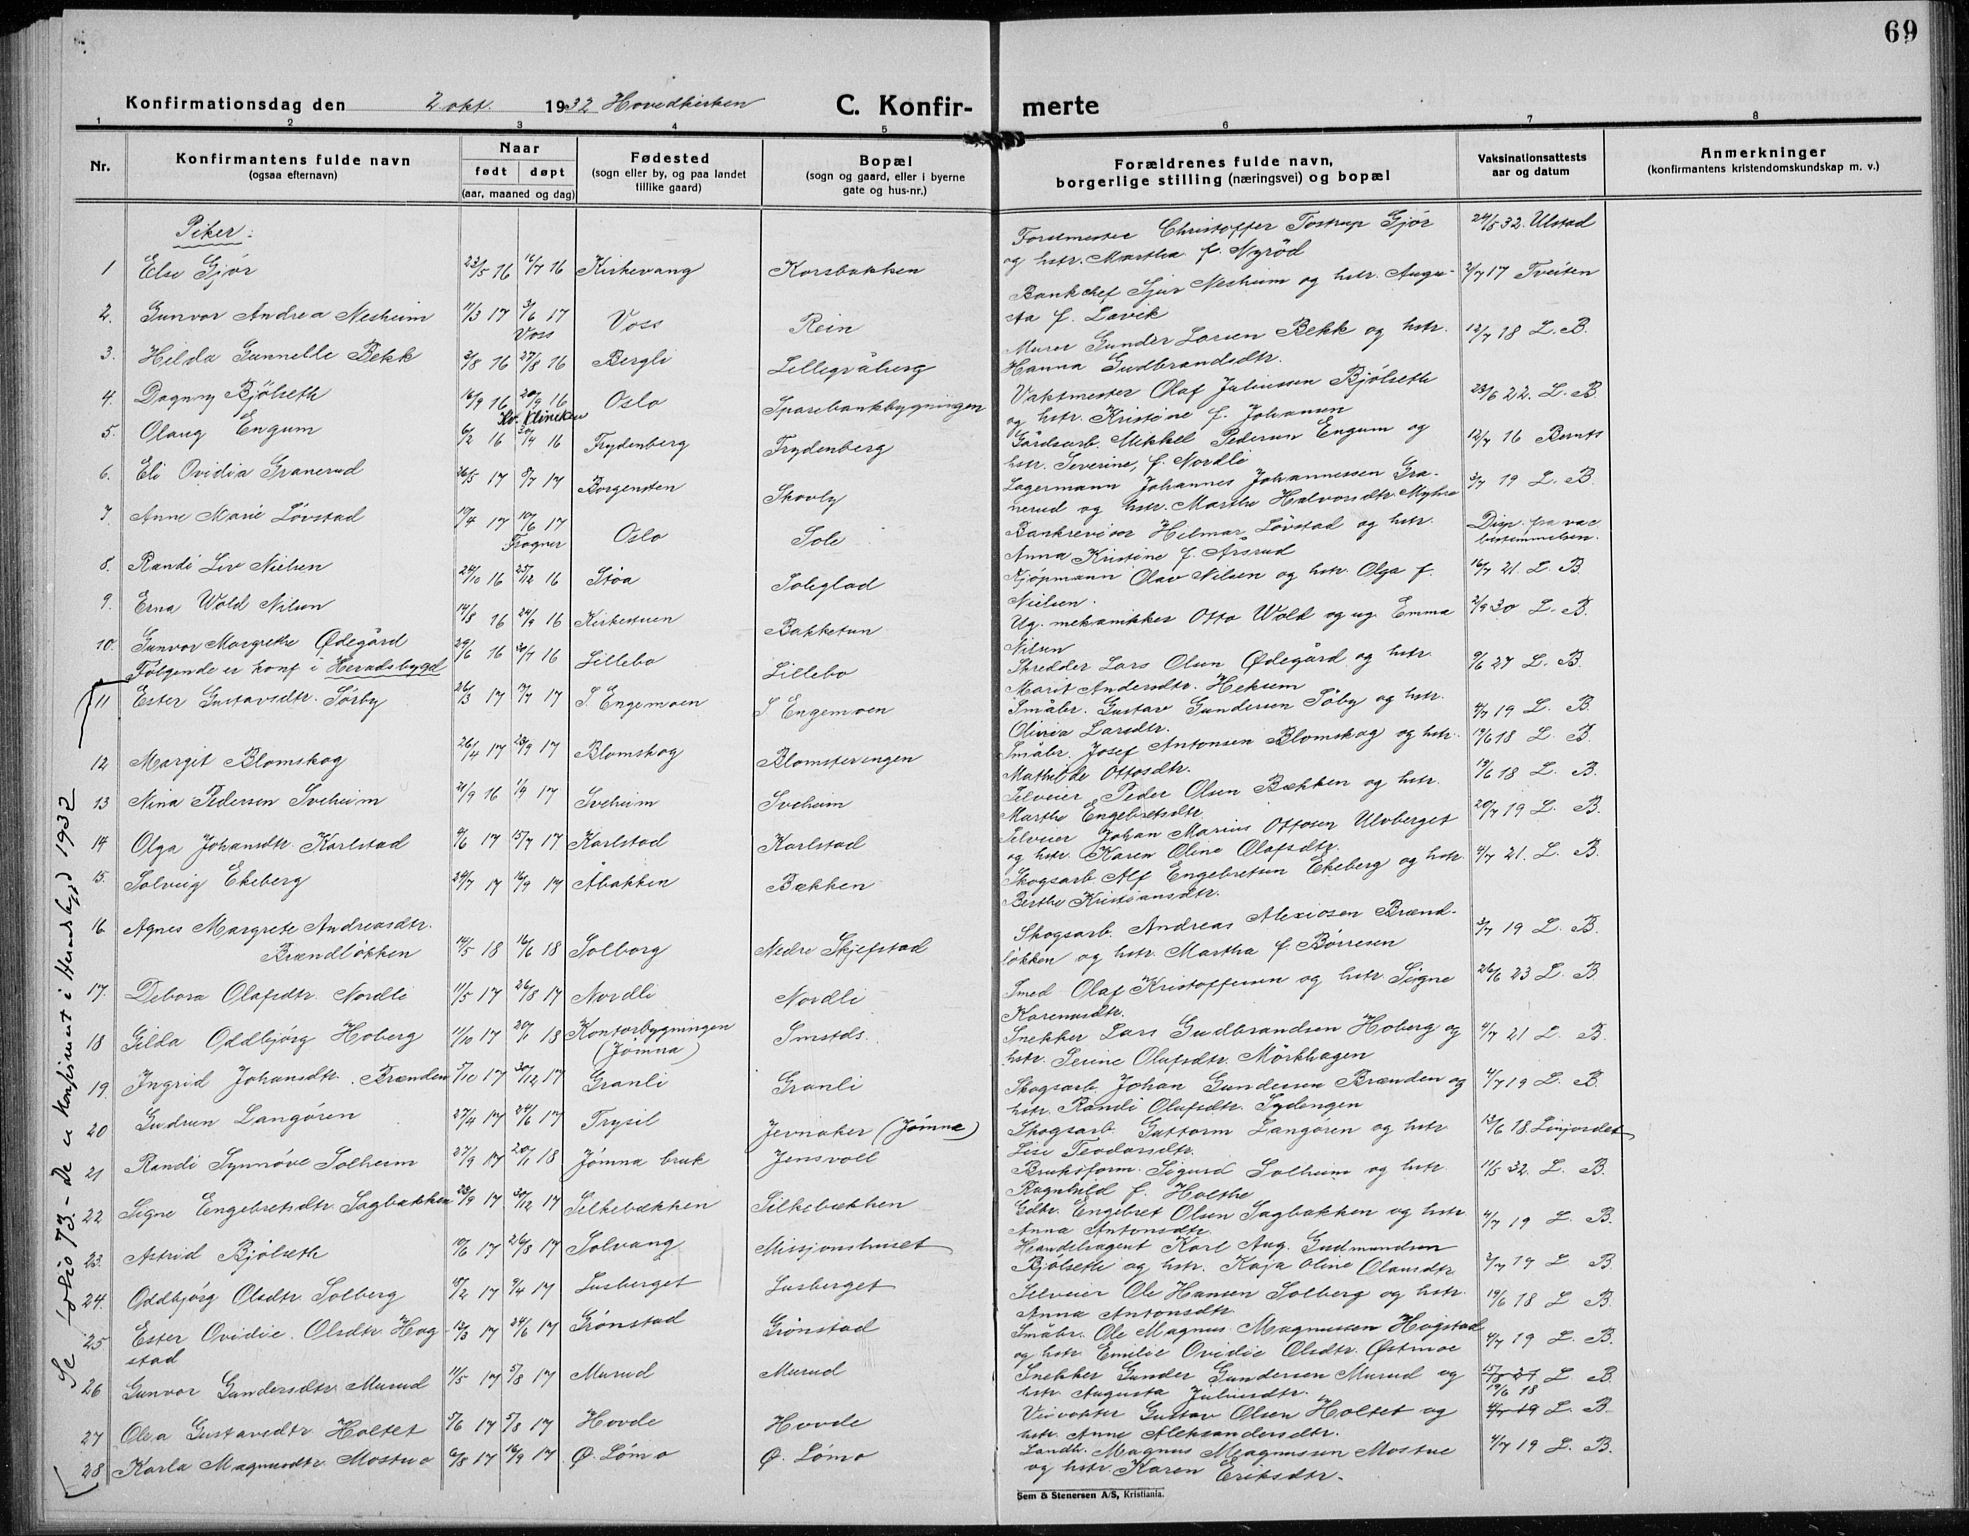 69
Konfirmationsdag den 2. okt. 1932 Hovedkirken C. Konfir- merte
1 2 3 4 5 6 7 8
Nr.
Konfirmantens fulde navn
(ogsaa efternavn)
Naar
født døpt
(aar, maaned og dag)
Fødested
(sogn eller by, og paa landet
tillike gaard)
Bopæl
(sogn og gaard, eller i byerne
gate og hus-nr.)
Forældrenes fulde navn,
borgerlige stilling (næringsvei) og bopæl
Vaksinationsattests
aar og datum
Anmerkninger
(konfirmantens kristendomskundskap m. v.)
Piker:
1 Else Gjør 23/5 16 16/7 16 Kirkevang Korsbakken
Forstmester Christoffer Tostrup Gjør 24/5 32. Ulstad
og hstr. Martha f. Nyröd
2. Gunvor Andrea Nesheim 11/3 17 3/6 17 Voss Voss Rein
Bankchef Sjur Nesheim og hstr. Augu- 2/7 17 Tveiten
sta f. Lavik
3. Hilda Gunnelle Bekk 3/8 16 27/8 16 Bergli Lillegråberg
Murer Gunder Larsen Bekk og hstr. 12/7 18 L. B.
Hanna Gudbrandsdtr.
4. Dagny Bjølseth 16/9 16 20/9 16 Kv. Kliniken Oslo Sparebankbygningen
Vaktmester Olaf Juliussen Bjölseth 23/6 22. L. B.
og hstr. Kristine f. Johansen
5. Olaug Engum 6/2 16 30/4 16 Frydenberg Frydenberg
Gårdsarb. Mikkel Pedersen Engum og 12/7 16 Bernts
hstr. Severine, f. Nordli
6. Eli Ovidia Granerud 26/5 17 8/7 17 Borgensten Skovly
Lagermann Johannes Johannessen Gra- 3/7 19 L. B.
nerud og hstr. Marthe Halvorsdtr. Myhre
7. Anne Marie Lövstad 19/4 17 10/6 17 Frogner Oslo Sole
Bankrevisor Hilmar Lövstad og hstr. Disp. fra vac
bestemmelsen.
Anna Kristine f. Arsrud
8. Randi Liv Nielsen 24/10 16 25/12 16 Stöa Soleglad
Kjöpmann Olav Nilsen og hstr. Olga f. 16/7 21 L. B.
Nielsen.
9. Erna Wold Nilsen 14/8 16 24/9 16 Kirkestuen Bakketun
Ug. mekanikker Otto Wold og ug. Emma 2/9 30 L. B.
Nilsen
10. Gunvor Margrethe Ødegård 29/6 16 30/7 16 Lillebo Lillebo
Skredder Lars Olsen Ødegård og hstr. 9/6 27 L. B.
Marit Andersdtr. Heksem
Følgende er konf. i Heradsbygd
11 Ester Gustavsdtr. Sørby 26/3 17 9/7 17 S. Engemoen S. Engemoen
Småbr. Gustav Gundersen Söby og hstr. 4/7 19 L. B.
Olivia Larsdtr.
12 Margit Blomskog 26/4 17 23/9 17 Blomskog Blomsterengen
Småbr. Josef Antonsen Blomskog og hstr. 19/6 18 L. B.
Mathilde Ottosdtr.
13 Nina Pedersen Sveheim 21/9 16 1/9 17 Sveheim Sveheim
Selveier Peder Olsen Bækken og hstr. 19/6 18 L. B.
Marthe Engebretsdtr.
14 Olga Johansdtr. Karlstad 9/6 17 15/7 17 Karlstad Karlstad
Selveier Johan Marius Ottosen Ulvberget 20/7 19 L. B.
og hstr. Karen Oline Olafsdtr.
15. Solveig Ekeberg 24/7 17 16/9 17 Åbakken Bækken
Skogsarb. Alf Engebretsen Ekeberg og hstr. 4/7 21. L. B.
Berthe Kristiansdtr.
16. Agnes Margrete Andreasdtr.
Brændløkken 14/5 18 16/6 18 Solborg Nedre Skjefstad
Skogsarb. Andreas Alexiosen Brænd- 3/7 19 L. B.
løkken og hstr. Martha f. Börresen
17. Debora Olafsdtr. Nordli 11/5 17 26/8 17 Nordli Nordli
Smed Olaf Kristoffersen og hstr. Signe 26/6 23 L. B
Karenusdtr.
18 Gilda Oddbjörg Hoberg 11/10 17 20/1 18 Kontorbygningen
(Jømna) Smstds.
Snekker Lars Gudbrandsen Hoberg og 4/7 21 L. B.
hstr. Serine Olafsdtr. Mörkhagen
19. Ingrid Johansdtr. Brænden 5/10 17 30/12 17 Granli Granli
Skogsarb. Johan Gundersen Brænden og 4/7 19 L. B.
hstr. Randi Olufsdtr. Sydengen
20 Gudrun Langören 27/4 17 24/6 17 Trysil Jevnaker (Jömna)
Skogsarb. Guttorm Langören og hstr. 12/6 18. Linjordet
Lise Teodorsdtr.
21 Randi Synnöve Solheim 27/9 17 20/1 18 Jömna bruk Jensvoll
Bruksform. Sigurd Solheim og hstr. 11/5 32. L. B.
Ragnhild f. Holthe
22 Signe Engebretsdtr. Sagbakken 23/9 17 30/12 17 Silkebækken Silkebækken
Gdbr. Engebret Olsen Sagbakken og hstr. 4/7 19 L. B.
Anna Antonsdtr.
23. Astrid Bjölseth 10/6 17 26/8 17 Solvang Missjonshuset
Handelsagent Karl Aug. Gudmundsen 3/7 19 L. B.
Bjölseth og hstr. Kaja Oline Olausdtr.
24. Oddbjörg Olsdtr. Solberg 10/2 17 9/4 17 Lusberget Lusberget
Selveier Ole Hansen Solberg og hstr. 19/6 18 L. B.
Anna Antonsdtr.
25 Ester Ovidie Olsdtr. Hag-
stad 13/3 17 24/6 17 Grönstad Grönstad
Småbr. Ole Magnus Magnussen Hagstad 4/7 19 L. B.
og hstr. Emilie Ovidie Olsdtr. Östmoe
26 Gunvor Gundersdtr. Murud 11/5 17 5/8 17 Murud Murud
Snekker Gunder Gundersen Murud og 15/8 27 L B.
hstr. Augusta Juliusdtr. 19/6 18
27 Olea Gustavsdtr. Holtet 5/6 17 5/8 17 Hovde Hovde
Veivokter Gustav Olsen Holtet og 4/7 19 L. B.
hstr. Anne Aleksandersdtr.
28 Karla Magnusdtr. Mostue 6/8 17 16/9 17 Ø. Lömo Ø. Lömo
Landh. Magnus Magnussen Mostue 4/7 19 L. B.
og hstr. Karen Eriksdtr.
Se folio 73. - De er konfirmert i Heradsbygd 1932
Sem & Stenersen A/S, Kristiania.